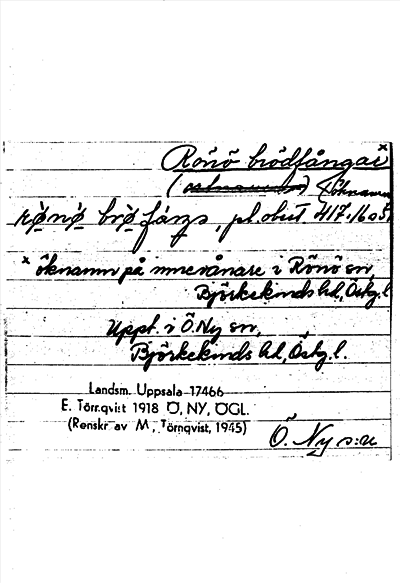 Rönö brödfångar x
(ortnamn) (öknamn
rönö bröfångs, pl. obest 417.1603.
x öknamn på innevånare i Rönö sn,
Björkekinds hd, Östg. l.
Uppt. i Ö. Ny sn,
Björkekinds hd, Östg. l.
Landsm. Uppsala 17466
E. Törnqvist 1918 Ö. NY, ÖGL.
(Renskr av M. Törnqvist, 1945)
Ö. Ny s:n